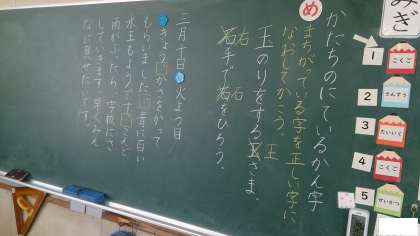 みぎ
1 こくご
2 さんすう
3 たいいく
4 こくご
5 せいかつ
かたちのにているかん字
め
まちがっている字を正しい字に、
なおしてかこう。
玉のりをする玉さま。
王
石手で右をひろう。
右
石
三月十日 火よう日
きょう、かさをかって
もらいました。青に白い
水王もようです。
雨がふったら、学校にさ
していきます。早くみん
なに見せたいです。